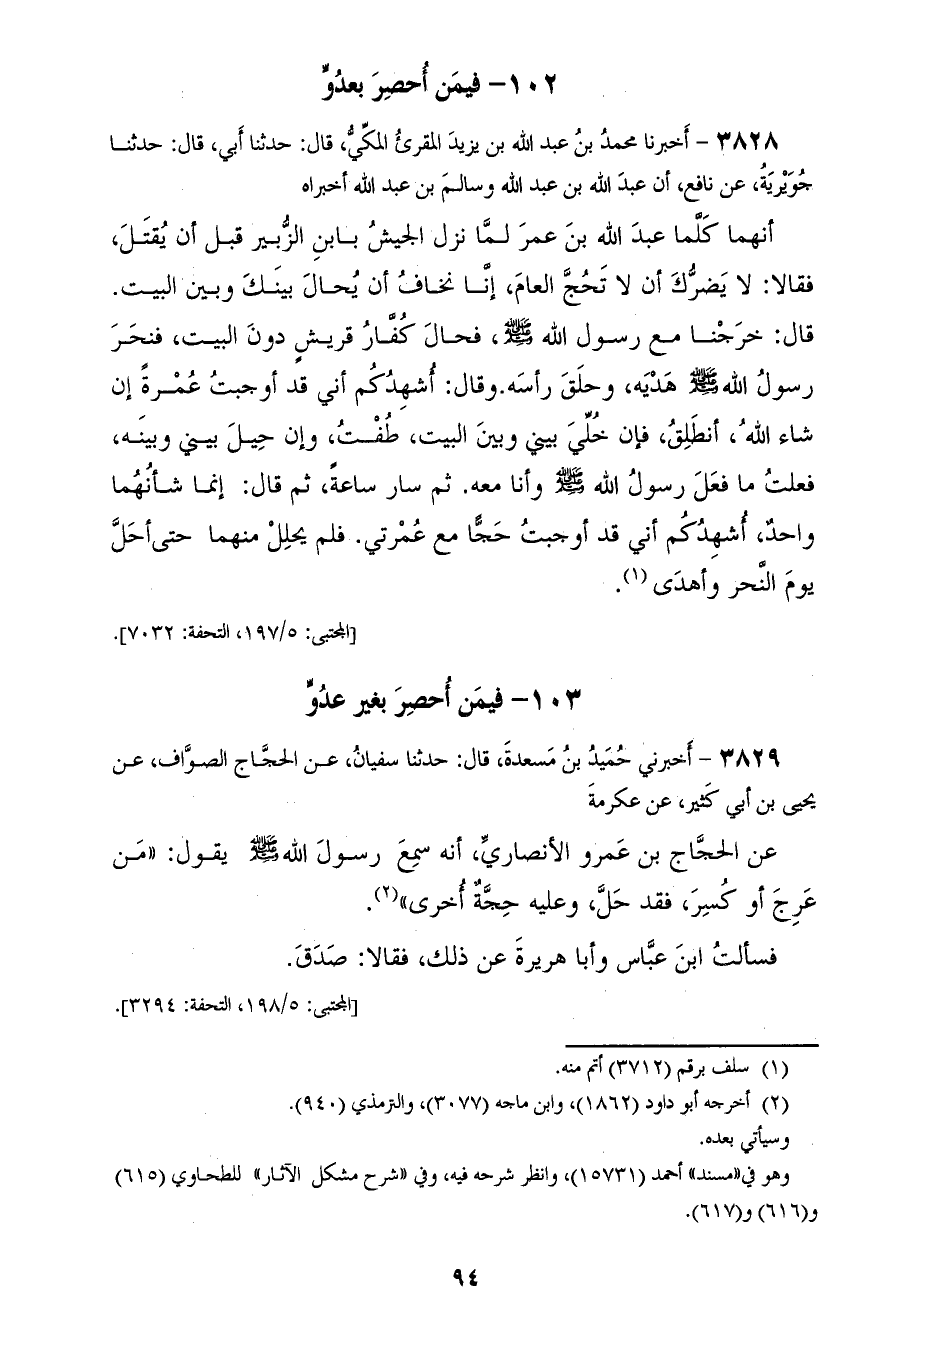 ١٠٢- فيمَن أُحصِرَ بعدُوٍّ
٣٨٢٨ - أَخبرنا محمدُ بنُ عبد الله بن يزيدَ المقرئُ المكِّيُّ، قال: حدثنا أبي، قال: حدثنــا
جُوَيْرِيَةُ، عن نافع، أن عبدَ الله بن عبد الله وسالـمَ بن عبد الله أخبراه
أنهما كَلَّما عبدَ الله بنَ عمرَ لـمَّا نزل الجيشُ بـابنِ الزُّبير قبـل أن يُقتَـلَ،
فقالا: لا يَضرُّكَ أن لا تَحُجَّ العامَ، إنَّـا نخـافُ أن يُحـالَ بينَـكَ وبـين البيـت.
قال: خرَجْنـا مـع رسـول الله ﷺ، فحـالَ كُفَّـارُ قريـشٍ دونَ البيـت، فنحَـرَ
رسولُ الله ﷺ هَدْيَه، وحلَقَ رأسَه.وقال: أُشهِدُكُم أني قد أوجبتُ عُمْـرةً إن
شاء اللهُ، أنطَلِقُ، فإن خُلِّيَ بيني وبينَ البيت، طُفْـتُ، وإن حِيـلَ بيـني وبينَـه،
فعلتُ ما فعَلَ رسولُ الله ﷺ وأنا معه. ثم سار ساعةً، ثم قال: إنما شـأنُهُما
واحدٌ، أُشهِدُكُم أني قد أوجبتُ حَجًّا مع عُمْرتي. فلم يحلِلْ منهما حتى أحَلَّ
يومَ النَّحر وأهدَى (١).
[المجتبى: ١٩٧/٥، التحفة: ٧٠٣٢].
١٠٣- فيمَن أُحصِرَ بغير عدُوٍّ
٣٨٢٩ - أَخبرني حُمَيدُ بنُ مَسعدةَ، قال: حدثنا سفيانُ، عـن الحجَّـاج الصـوَّاف، عـن
يحيى بن أبي كَثير، عن عكرمةَ
عن الحجَّاج بن عَمرو الأنصاريِّ، أنه سمِعَ رسـولَ الله ﷺ يقـول: «مَـن
عَرِجَ أو كُسِرَ، فقد حَلَّ، وعليه حِجَّةٌ أُخرى»(٢).
فسألتُ ابنَ عبَّاس وأبا هريرةَ عن ذلك، فقالا: صَدَقَ.
[المجتبى: ١٩٨/٥، التحفة: ٣٢٩٤].
(١) سلف برقم (٣٧١٢) أتم منه.
(٢) أخرجه أبو داود (١٨٦٢)، وابن ماجه (٣٠٧٧)، والترمذي (٩٤٠).
وسيأتي بعده.
وهو في «مسند» أحمد (١٥٧٣١)، وانظر شرحه فيه، وفي «شرح مشكل الآثـار» للطحـاوي (٦١٥)
و(٦١٦) و(٦١٧).
٩٤